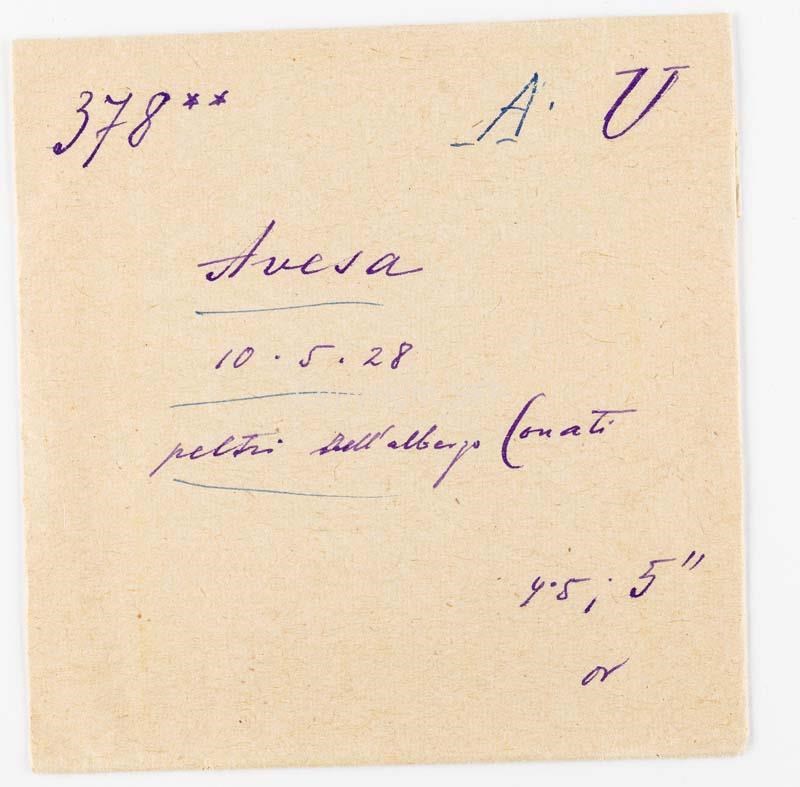 378** A. V
Avesa
10.5.28
peltri dell'albergo Conati
4.5; 5"
or